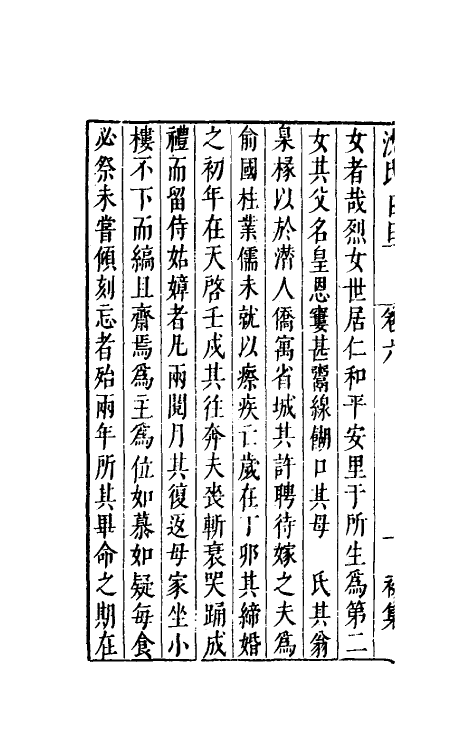 沈氏日旦 卷六 初集
女者哉烈女世居仁和平安里于所生爲第二
女其父名皇恩窶甚鬻線餬口其母 氏其翁
臬椽以於濳人僑寓省城其許聘待嫁之夫爲
俞國柱業儒未就以瘵疾亡歲在丁卯其締婚
之初年在天啓壬戍其徃奔夫喪斬衰哭踊成
禮而留侍姑嫜者凡兩閱月其復返母家坐小
樓不下而縞且齋焉爲主爲位如慕如疑每食
必祭未嘗傾刻忘者殆兩年所其畢命之期在